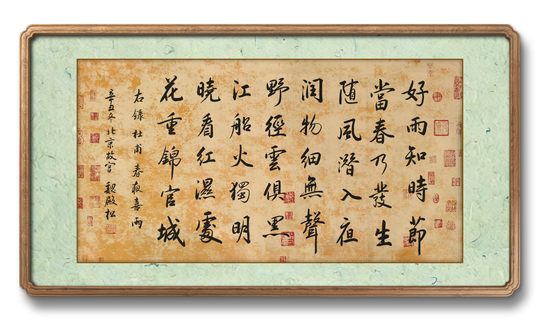 好雨知時節
當春乃發生
随風潛入夜
润物細無聲
野徑雲俱黑
江船火獨明
曉看紅濕處
花重錦官城
右錄杜甫春夜喜雨
辛丑年北京故宮魏殿松